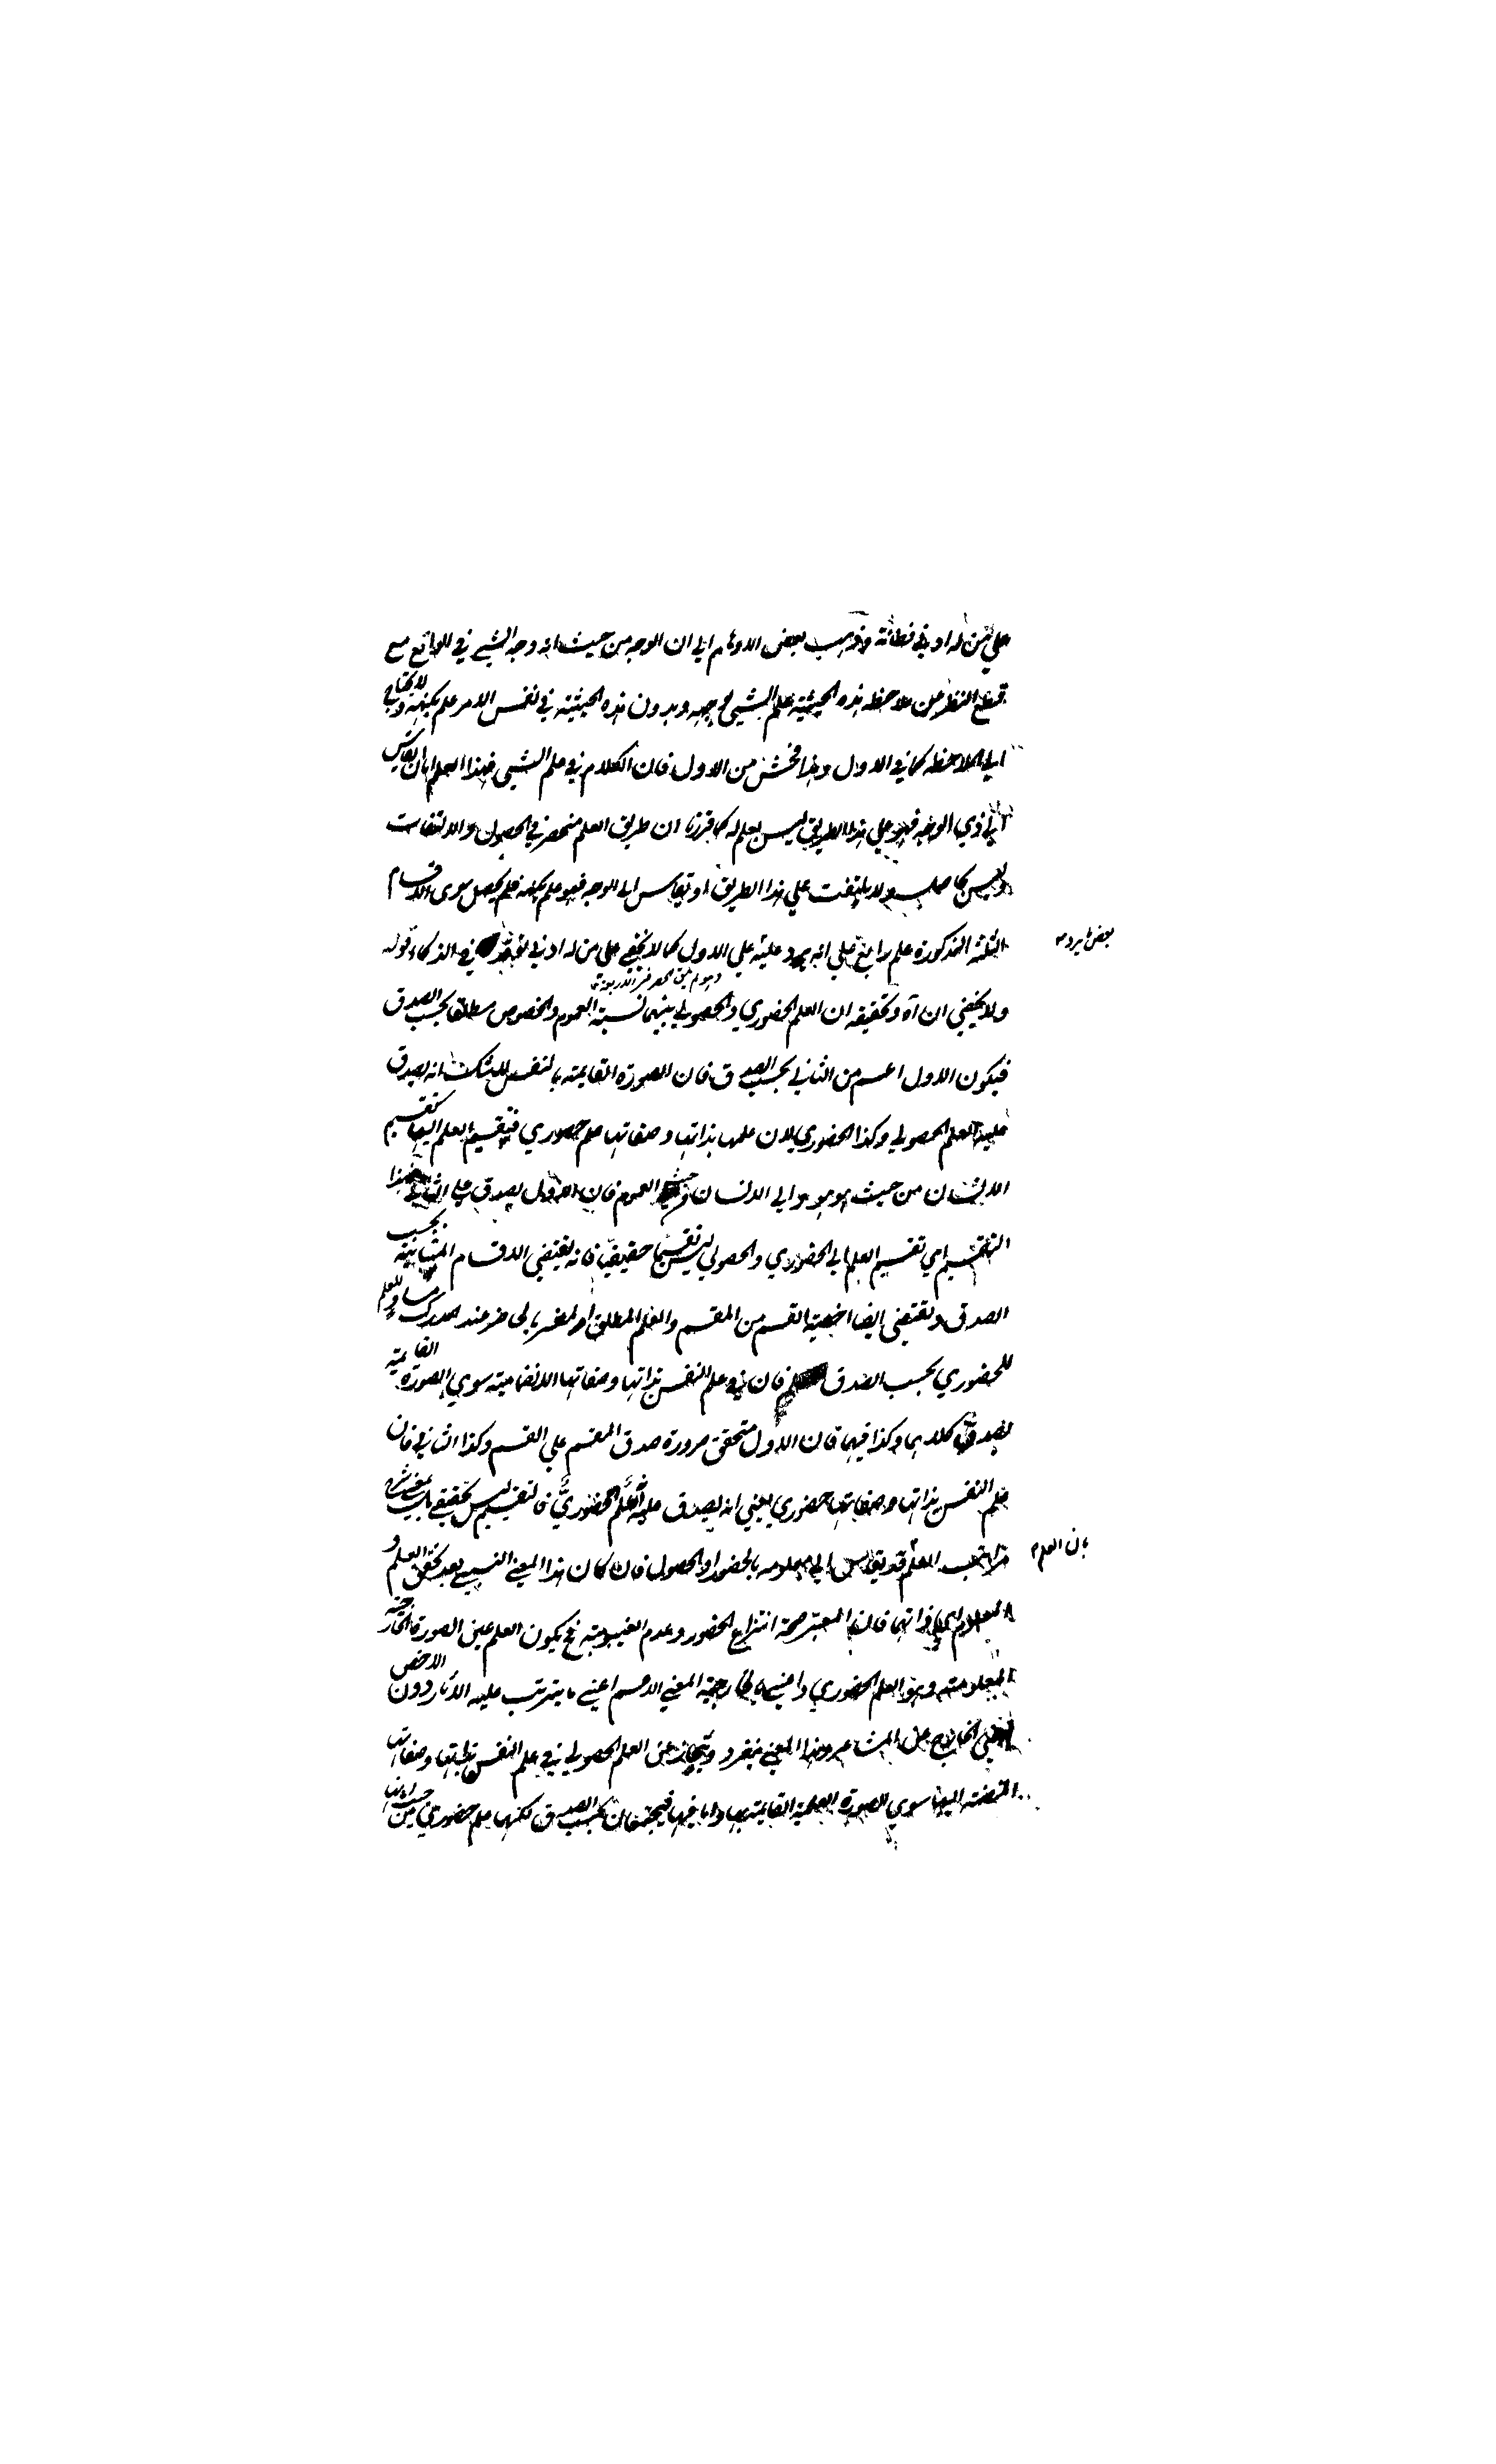 علي من له ادني فطانة وذهب بعض الاوهام الي ان الوجه من حيث انه وجه الشيي في الواقع مع
قطع النظر عن ملاحظة هذه الحيثية علم الشيي بوجهه وبدون هذه الحيثية في نفس الامر علم بكنهه ولا يحتاج
الي الملاحظة كما في الاول وهذا افحش من الاول فان الكلام في علم الشيي فهذا العلم اما ان يقاس
الي ذي الوجه فهو علي هذا الطريق ليس بعلم له كما قررنا ان طريق العلم منحصر في الحصول والالتفات
وليس بحاصل ولا يلتفت علي هذا الطريق او يقاس الي الوجه فهو علم بكنهه فلم يحصل سوي الاقسام
الثلثة المذكورة علم رابع علي انه يرد عليه علي الاول كما لا يخفي علي من له ادني في الذكاء قوله
بعض ما يرد
ولا يخفي ان آه وتحقيقه ان العلم الحضوري والحصولي بينهما نسبة العموم والخصوص مطلقا بحسب الصدق
فيكون الاول اعم من الثاني بحسب الصدق فان الصورة القايمة بالنفس لا شك انه يصدق
عليها العلم الحصولي وكذا الحضوري لان علمها بذاتها وصفاتها علم حضوري فتقسيم العلم اليهما كتقسيم
الانسان من حيث هو هو والي الانسان من حيث العموم فان الاول يصدق علي الثاني فهذا
التقسيم اي تقسيم العلم الي الحضوري والحصولي ليس تقسيما حقيقيا فانه يقتضي الاقسام المتباينة بحسب
الصدق وتقتضي ايضا اخصية القسم من المقسم والعلم المطلق المفسر بالحاضر عند المدرك مساو للعلم
للحضوري بحسب الصدق فان في علم النفس بذاتها وصفاتها الانضمامية سوي الصورة القايمة
يصدق كلاهما وكذا فيها فان الاول متحقق ضرورة صدق المقسم علي القسم وكذا الثاني فان
علم النفس بذاتها وصفاتها حضوري يعني انه يصدق عليه العلم الحضوري فالتقسيم ليس بحقيقي
بان العلم قد يقاس الي معلومه بالحضور او الحصول فان كان هذا المعني النسبي بعد تحقق العلم و
المعلوم فان المعتبر صحة انتزاع الحضور وعدم الغيبوبة فح يكون العلم عين الصورة الخارجية
المعلومة وهو العلم الحضوري واعني بالخارجية المعني الاعم اعني ما يترتب عليه الآثار دون الاخص
اعني الخارج عن المشاعر وبهذا المعني ينفرد ويمتاز عن العلم الحصولي في علم النفس بذاتها وصفاتها
المنضمة اليها سوي الصورة العلمية القايمة بها واما فيها فيجتمعان بحسب الصدق لكنها علم حضوري من حيث انها